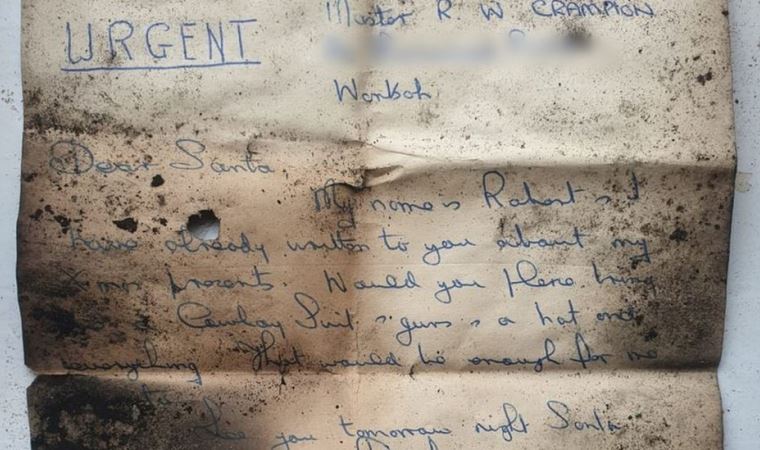 Master R. W CRAMPTON
URGENT
Worksop
Dear Santa
My name is Robert & I
have already written to you about my
Xmas presents. Would you please bring
a Cowboy Suit & guns & a hat and
everything That would be enough for me
See you tomorrow night Santa